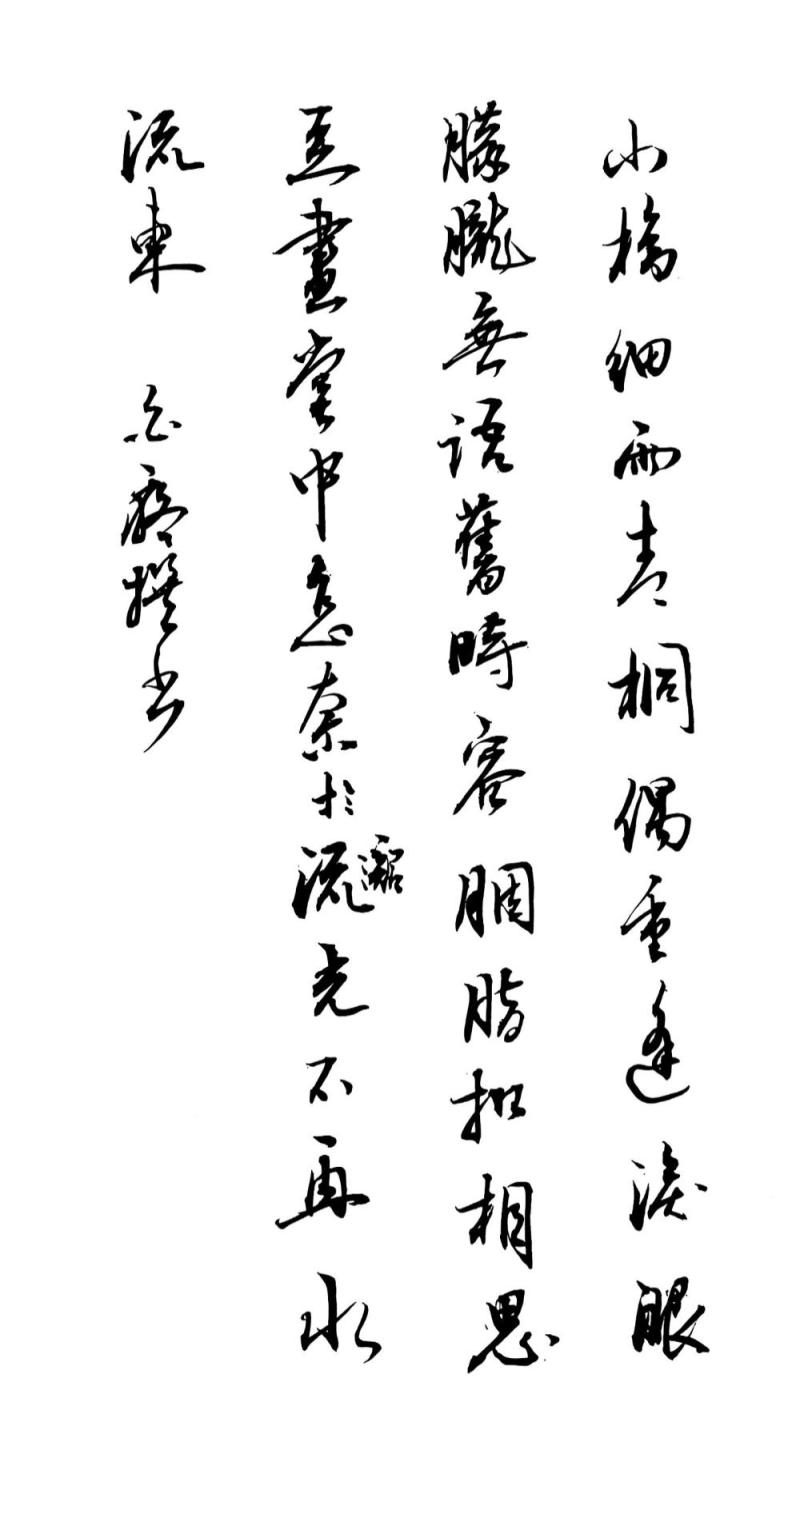 小橋細雨青桐偶重逢淚眼
朦朧無語舊時容胭脂扣相思
豆畫堂中怎奈於韶流光不再水
流東 撰书